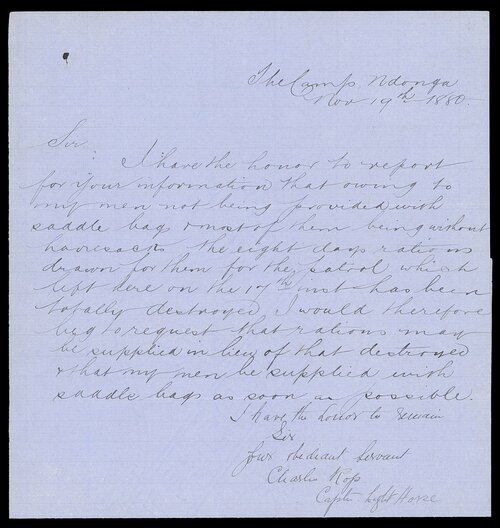 The Camp, Ndonga
Nov 19th 1880.
Sir,
I have the honor to report
for your information that owing to
my men not being provided with
saddle bags & most of them being without
haversacks the eight days rations
drawn for them for the patrol which
left here on the 17th inst has been
totally destroyed I would therefore
beg to request that rations may
be supplied in lieu of that destroyed
& that my men be supplied with
saddle bags as soon as possible.
I have the honor to remain
Sir
your obediant Servant
Charlie
Captn. Light Horse